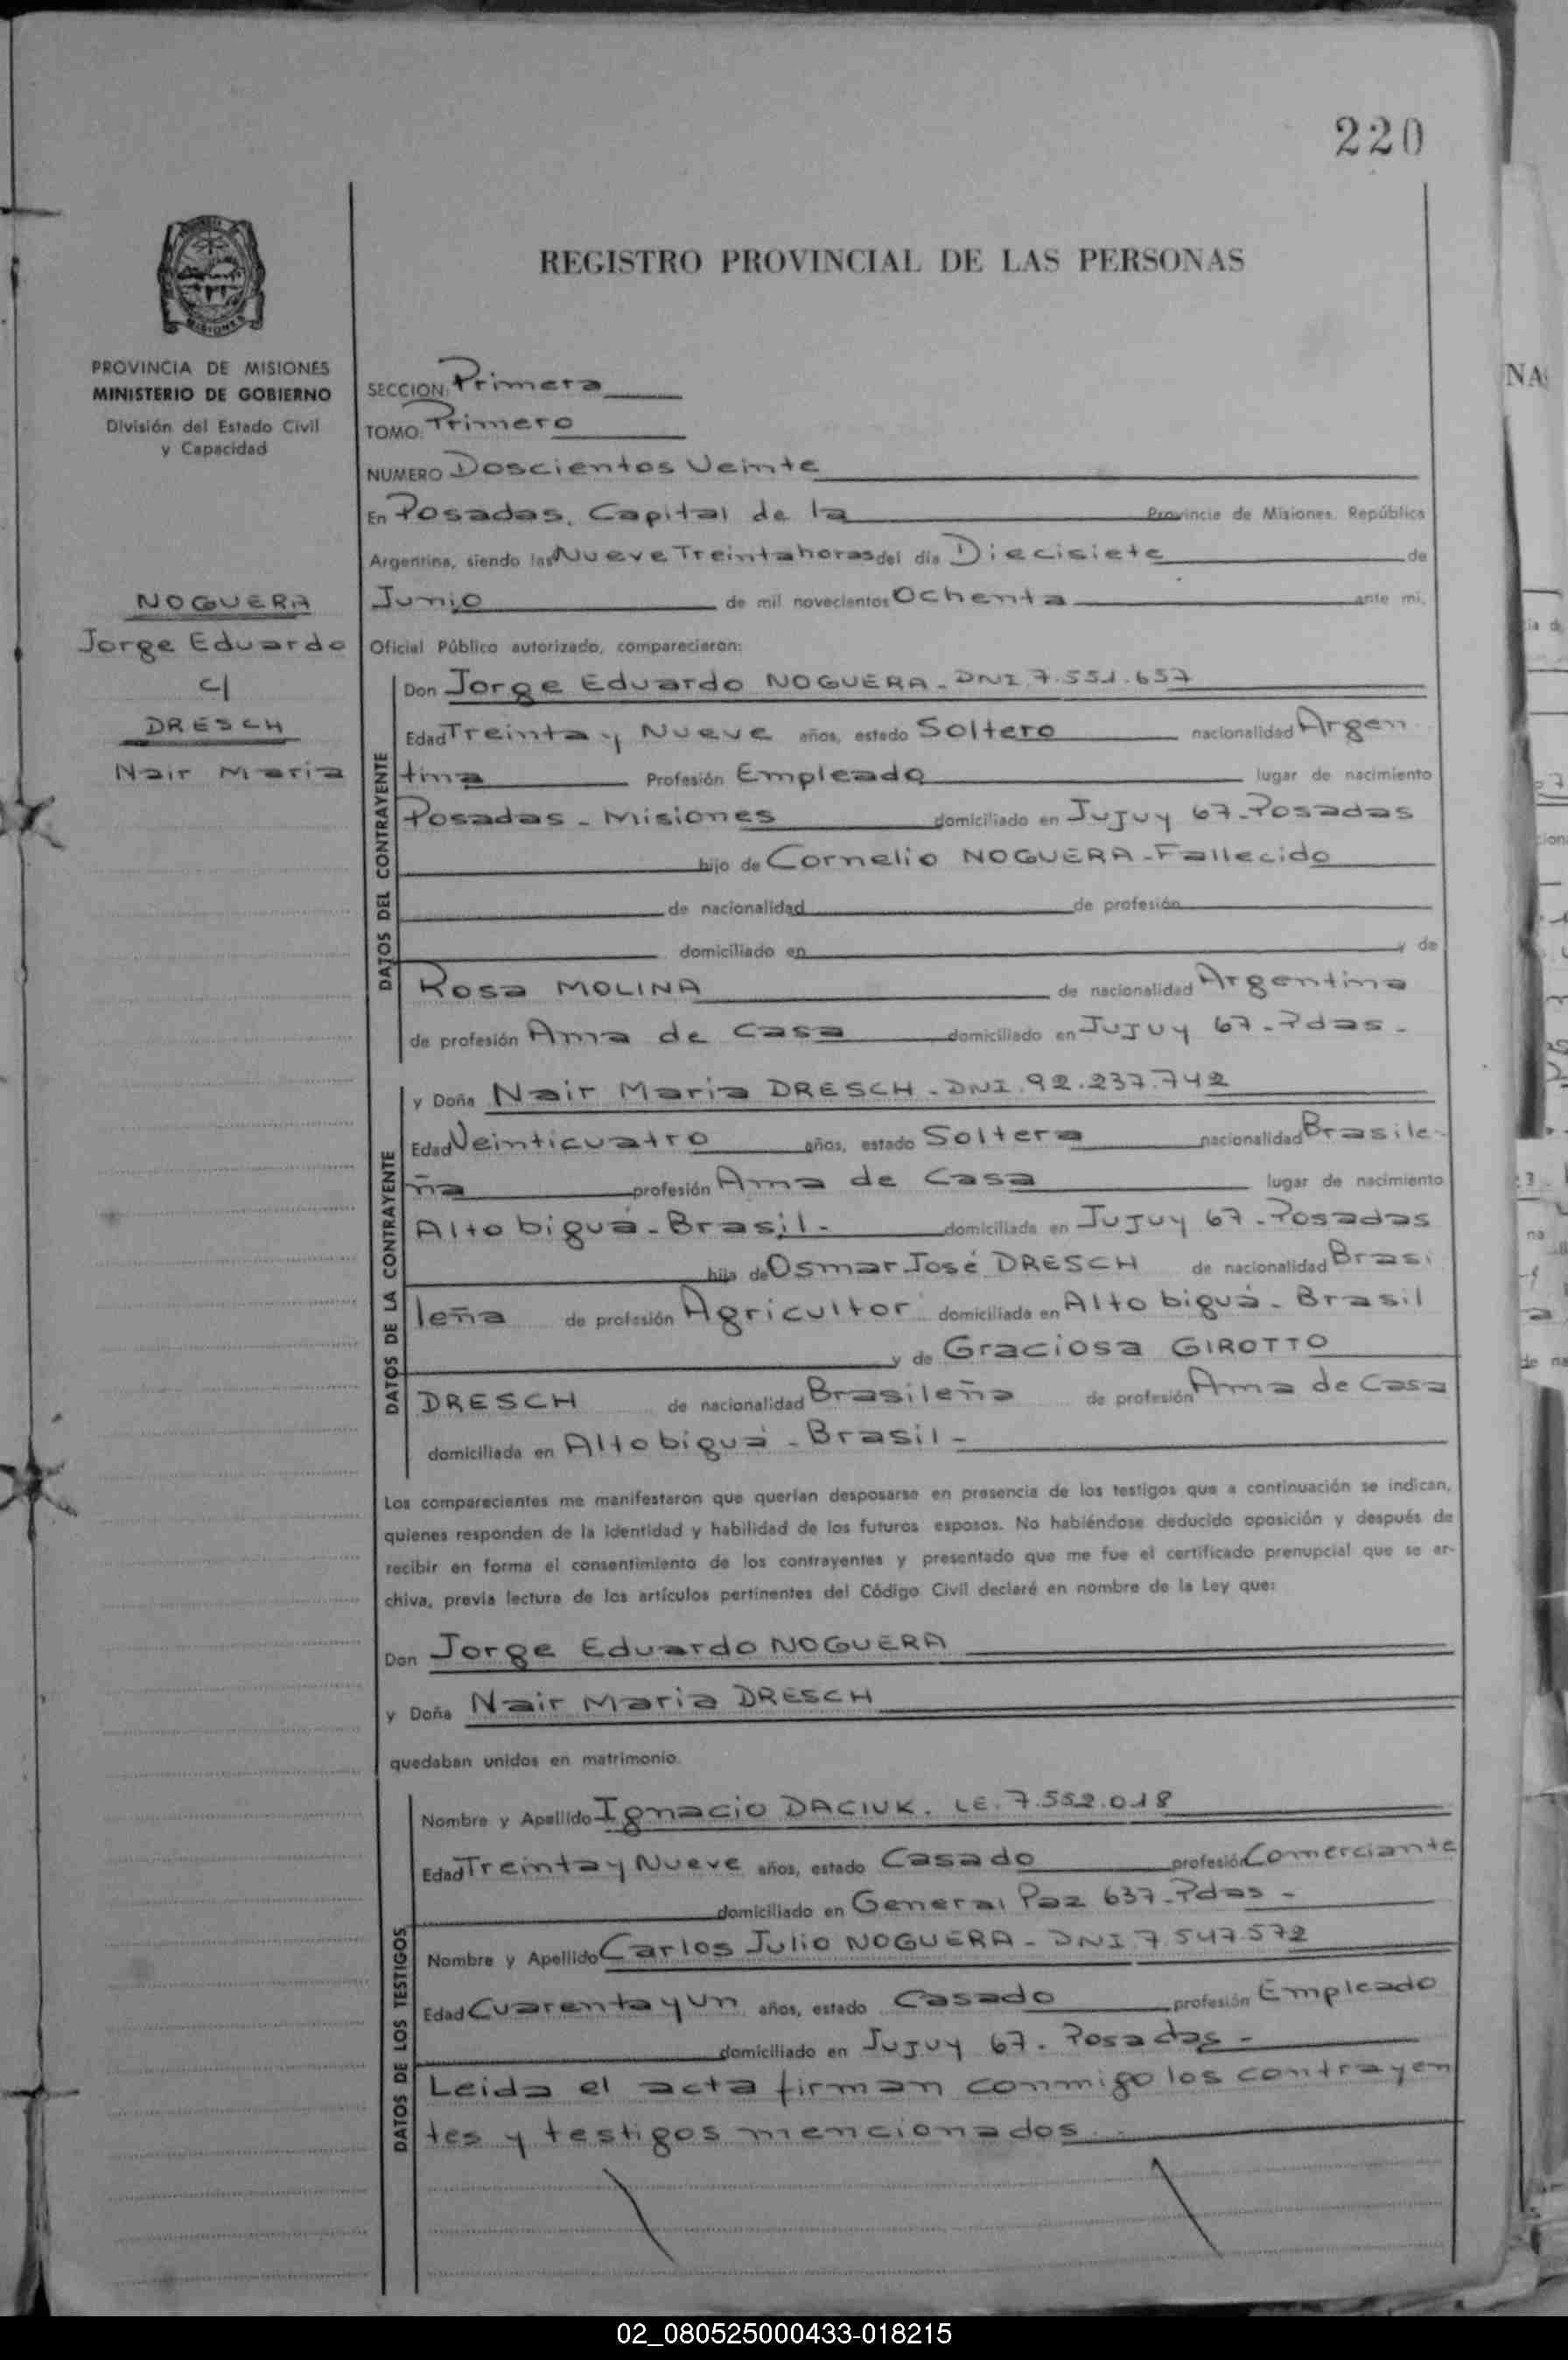 220
REGISTRO PROVINCIAL DE LAS PERSONAS
MISIONES
PROVINCIA DE MISIONES
MINISTERIO DE GOBIERNO
División del Estado Civil
y Capacidad
NOGUERA
Jorge Eduardo
c/
DRESCH
Nair Maria
SECCION: Primera
TOMO: Primero
NUMERO Doscientos Veinte
En Posadas, Capital de la Provincia de Misiones, República
Argentina, siendo las Nueve Treinta horas del día Diecisiete de
Junio de mil novecientos Ochenta ante mi,
Oficial Público autorizado, comparecieron:
DATOS DEL CONTRAYENTE
Don Jorge Eduardo NOGUERA - DNI 7.551.657
Edad Treinta y Nueve años, estado Soltero nacionalidad Argen
tina Profesión Empleado lugar de nacimiento
Posadas - Misiones domiciliado en Jujuy 67 - Posadas
hijo de Cornelio NOGUERA - Fallecido
de nacionalidad de profesión
domiciliado en y de
Rosa MOLINA de nacionalidad Argentina
de profesión Ama de Casa domiciliado en Jujuy 67 - Pdas -
DATOS DE LA CONTRAYENTE
y Doña Nair Maria DRESCH - DNI. 92.237.742
Edad Veinticuatro años, estado Soltera nacionalidad Brasile-
ña profesión Ama de Casa lugar de nacimiento
Alto biguá - Brasil - domiciliada en Jujuy 67 - Posadas
hija de Osmar José DRESCH de nacionalidad Brasi
leña de profesión Agricultor domiciliada en Alto biguá - Brasil
y de Graciosa GIROTTO
DRESCH de nacionalidad Brasileña de profesión Ama de Casa
domiciliada en Alto biguá - Brasil -
Los comparecientes me manifestaron que querían desposarse en presencia de los testigos que a continuación se indican,
quienes responden de la identidad y habilidad de los futuros esposos. No habiéndose deducido oposición y después de
recibir en forma el consentimiento de los contrayentes y presentado que me fue el certificado prenupcial que se ar-
chiva, previa lectura de los artículos pertinentes del Código Civil declaré en nombre de la Ley que:
Don Jorge Eduardo NOGUERA
y Doña Nair Maria DRESCH
quedaban unidos en matrimonio.
DATOS DE LOS TESTIGOS
Nombre y Apellido Ignacio DACIUK. LE. 7.552.018
Edad Treinta y Nueve años, estado Casado profesión Comerciante
domiciliado en General Paz 637 - Pdas -
Nombre y Apellido Carlos Julio NOGUERA - DNI 7.547.572
Edad Cuarenta y un años, estado Casado profesión Empleado
domiciliado en Jujuy 67 - Posadas -
Leida el acta firman conmigo los contrayen
tes y testigos mencionados.
02_080525000433-018215